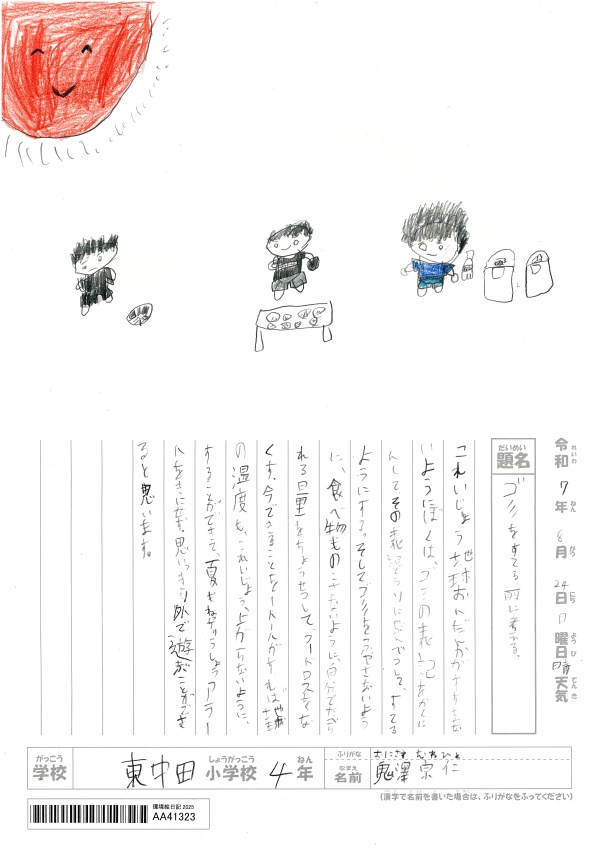 令和7年8月24日日曜日晴天気
れいわ ねん がつ にち ようび てんき
だいめい
題名 ゴミをすてる前に考える。
これいじょう地球おんだんかがすすまな
いようにぼくは、ゴミの表記をかくに
んしてその表記どうりに
すてる
ようにする。そしてゴミをふやさないよう
に、食べ物ものこさないように、自分でたべら
れる量をちょうせつして、フードロスをな
くす。今できることを
すれば地球
の温度も、これいじょう上がらないように、
することができて、夏もねっちゅうしょうアラー
思いっきり外で遊ぶことができ
ると思います。
がっこう
学校 東中田小学校4年
しょうがっこう ねん
ふりがな おにざわ むねひと
なまえ
名前 鬼澤宗仁
(漢字で名前を書いた場合は、ふりがなをふってください)
環境絵日記 2025
AA41323